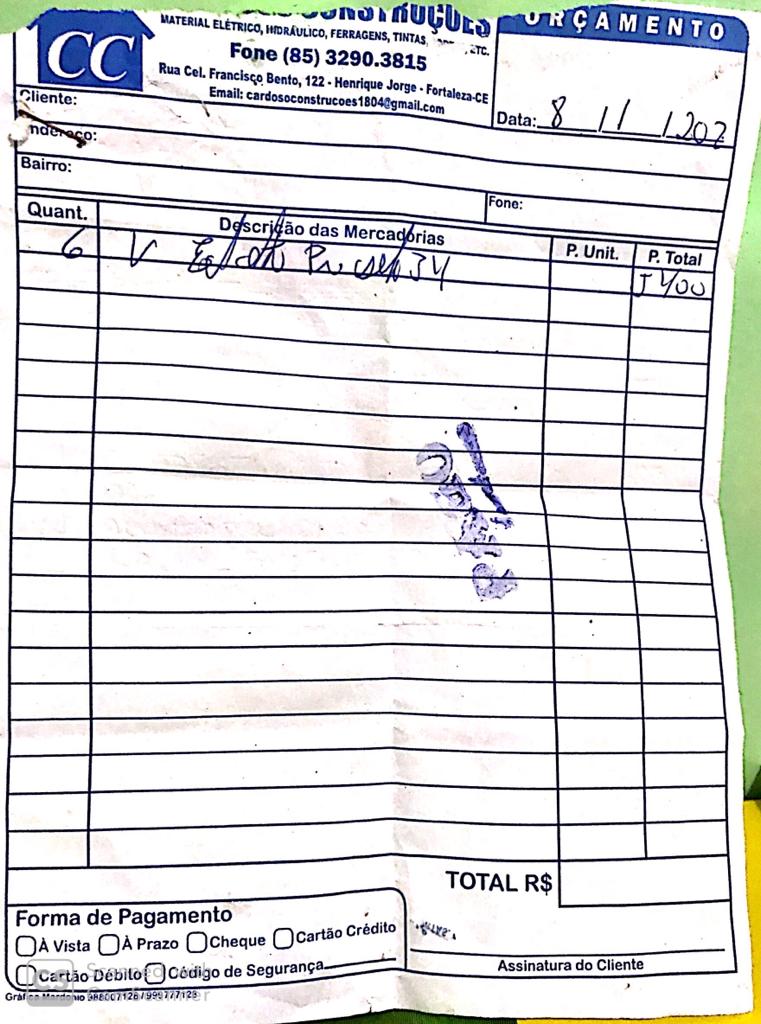 CONSTRUÇÕES
ORÇAMENTO
CC
MATERIAL ELÉTRICO, HIDRÁULICO, FERRAGENS, TINTAS, ETC.
Fone (85) 3290.3815
Rua Cel. Francisco Bento, 122 - Henrique Jorge - Fortaleza-CE
Email: cardosoconstrucoes1804@gmail.com
Data: 8 / 11 / 202
Cliente:
Endereço:
Bairro:
Fone:
Quant. Descrição das Mercadorias P. Unit. P. Total
6 V
TOTAL R$
Forma de Pagamento
À Vista À Prazo Cheque Cartão Crédito
Cartão Débito Código de Segurança
Assinatura do Cliente
CS Scanned with
CamScanner
Gráfica Mardonio 988007128 / 999777128